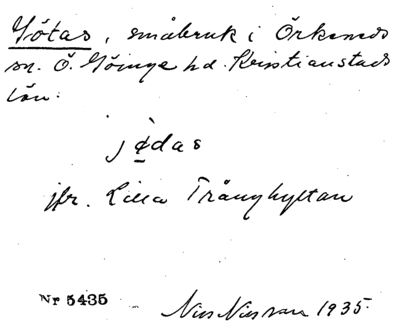 Götas, småbruk i Örkeneds
sn. Ö. Göinge hd. Kristianstads
län.
jø̀das
jfr. Lilla Trånghyltan
Nr 5435
Nils Nilsson 1935.